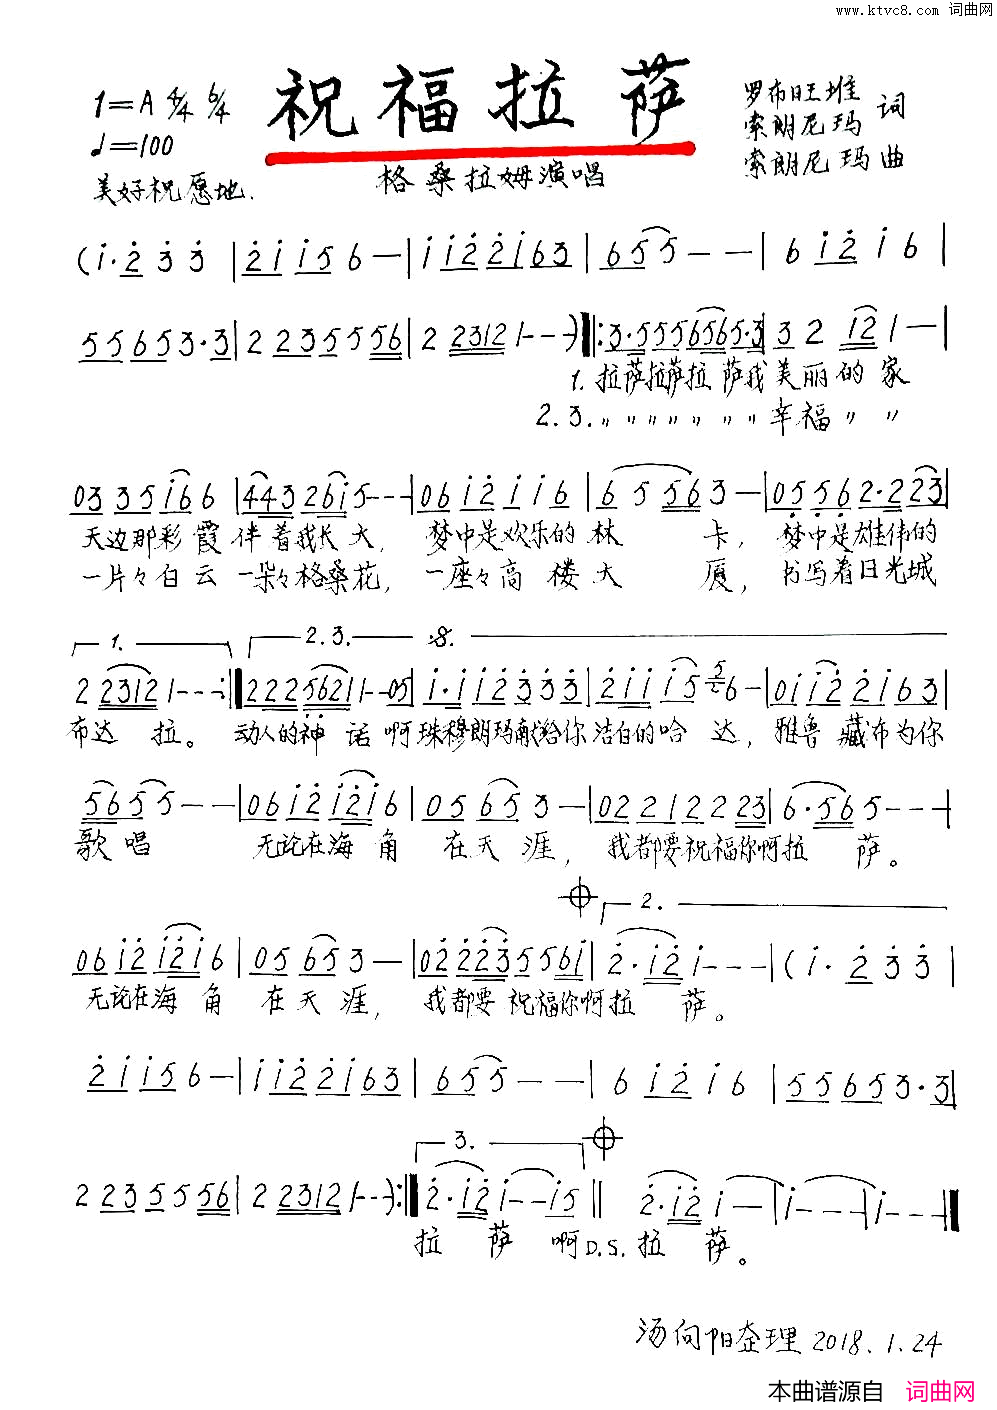 www.ktvc8.com 词曲网
祝福拉萨
1=A 4/4 6/4
♩=100
美好祝愿地.
格桑拉姆演唱
罗布旺堆
索朗尼玛 词
索朗尼玛 曲
(i·2 3 3 | 2 i i 5 6 — | i i 2 2 i 6 3 | 6 5 5 — — | 6 i 2 i 6 |
5 5 6 5 3·3 | 2 2 3 5 5 5 6 | 2 2 3 1 2 1 — — ) ‖: 3·5 5 5 6 5 6 5·3 | 3 2 1 2 1 — |
1. 拉萨拉萨拉 萨我美丽的家
2.3. 〃 〃 〃 〃 〃 〃 〃 幸福 〃 〃
0 3 3 5 i 6 6 | 4 4 3 2 6 i 5 — — — | 0 6 i 2 i i 6 | 6 5 5 6 3 — | 0 5 5 6 2·2 2 3 |
天边那彩霞伴着我长大, 梦中是欢乐的林 卡, 梦中是雄伟的
一片々白云 一朵々格桑花, 一座々高楼大 厦, 书写着日光城
1. 2.3. 𝄋
2 2 3 1 2 1 — — — :‖ 2 2 2 5 6 2 1 1 — — 0 5 | i·i i 2 3 3 3 | 2 i i i i 5 6 — | 0 i i 2 2 i 6 3 |
布达 拉。 动人的神 话啊珠穆朗玛献给你洁白的哈 达, 雅鲁藏布为你
5 6 5 5 — — | 0 6 i 2 i 2 i 6 | 0 5 6 5 3 — | 0 2 2 1 2 2 2 3 | 6·5 6 5 — — — |
歌唱 无论在海角 在天涯, 我都要祝福你啊拉 萨。
2.
0 6 i 2 i 2 i 6 | 0 5 6 5 3 — | 0 2 2 2 3 5 5 6 i | 2·i 2 i — — — | (i·2 3 3 |
无论在海角 在天涯, 我都要祝福你啊拉 萨。
2 i i 5 6 — | i i 2 2 i 6 3 | 6 5 5 — — | 6 i 2 i 6 | 5 5 6 5 3·3 |
3.
2 2 3 5 5 5 6 | 2 2 3 1 2 1 — — ) :‖ 2·i 2 i — — i 5 ‖ 2·i 2 i — | i — — — | i — — — ‖
拉 萨 啊 D.S. 拉 萨。
汤向阳整理 2018.1.24
本曲谱源自 词曲网